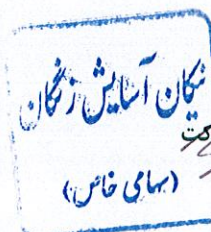 نیکان آسایش زنگان
کت
(سهامی خاص)